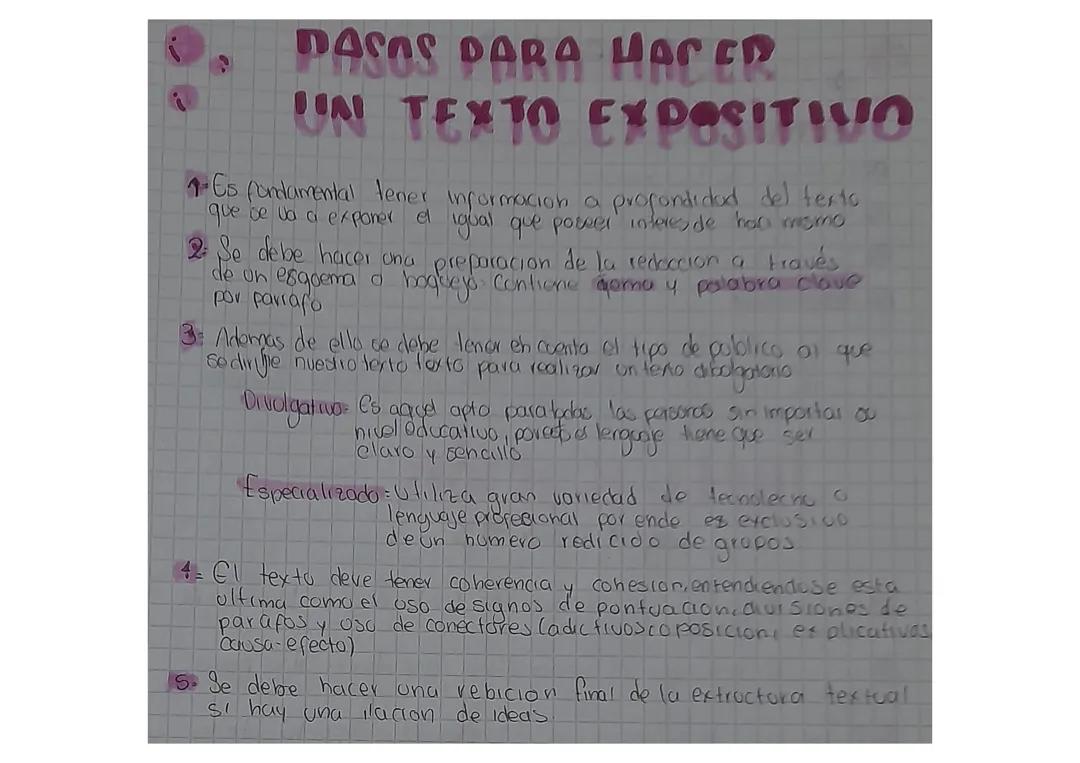 PASOS PARA HACER
UN TEXTO EXPOSITIVO
1- Es fundamental tener informacion a profundidad del texto
que se va a exponer el igual que poseer interes de mismo
2- Se debe hacer una preparacion de la redaccion a través
de un esquema o contiene y palabra clave
por parrafo
3- Ademas de ello se debe tener en cuenta el tipo de publico al que
se dirige nuestro texto texto para realizar un texto
Divulgativo= Es aquel apto para todas las personas sin importar su
nivel educativo, el lenguaje tiene que ser
claro y sencillo
Especializado= Utiliza gran variedad de o
lenguaje profesional por ende es exclusivo
de un numero redicido de grupos
4= El texto deve tener coherencia y cohesion, entendiendose esta
ultima como el uso de signos de puntuacion, divisiones de
parafos y uso de conectores (adictivos, coposicion, explicativos
causa-efecto)
5- Se debe hacer una rebicion final de la extructura textual
si hay una ilacion de ideas.